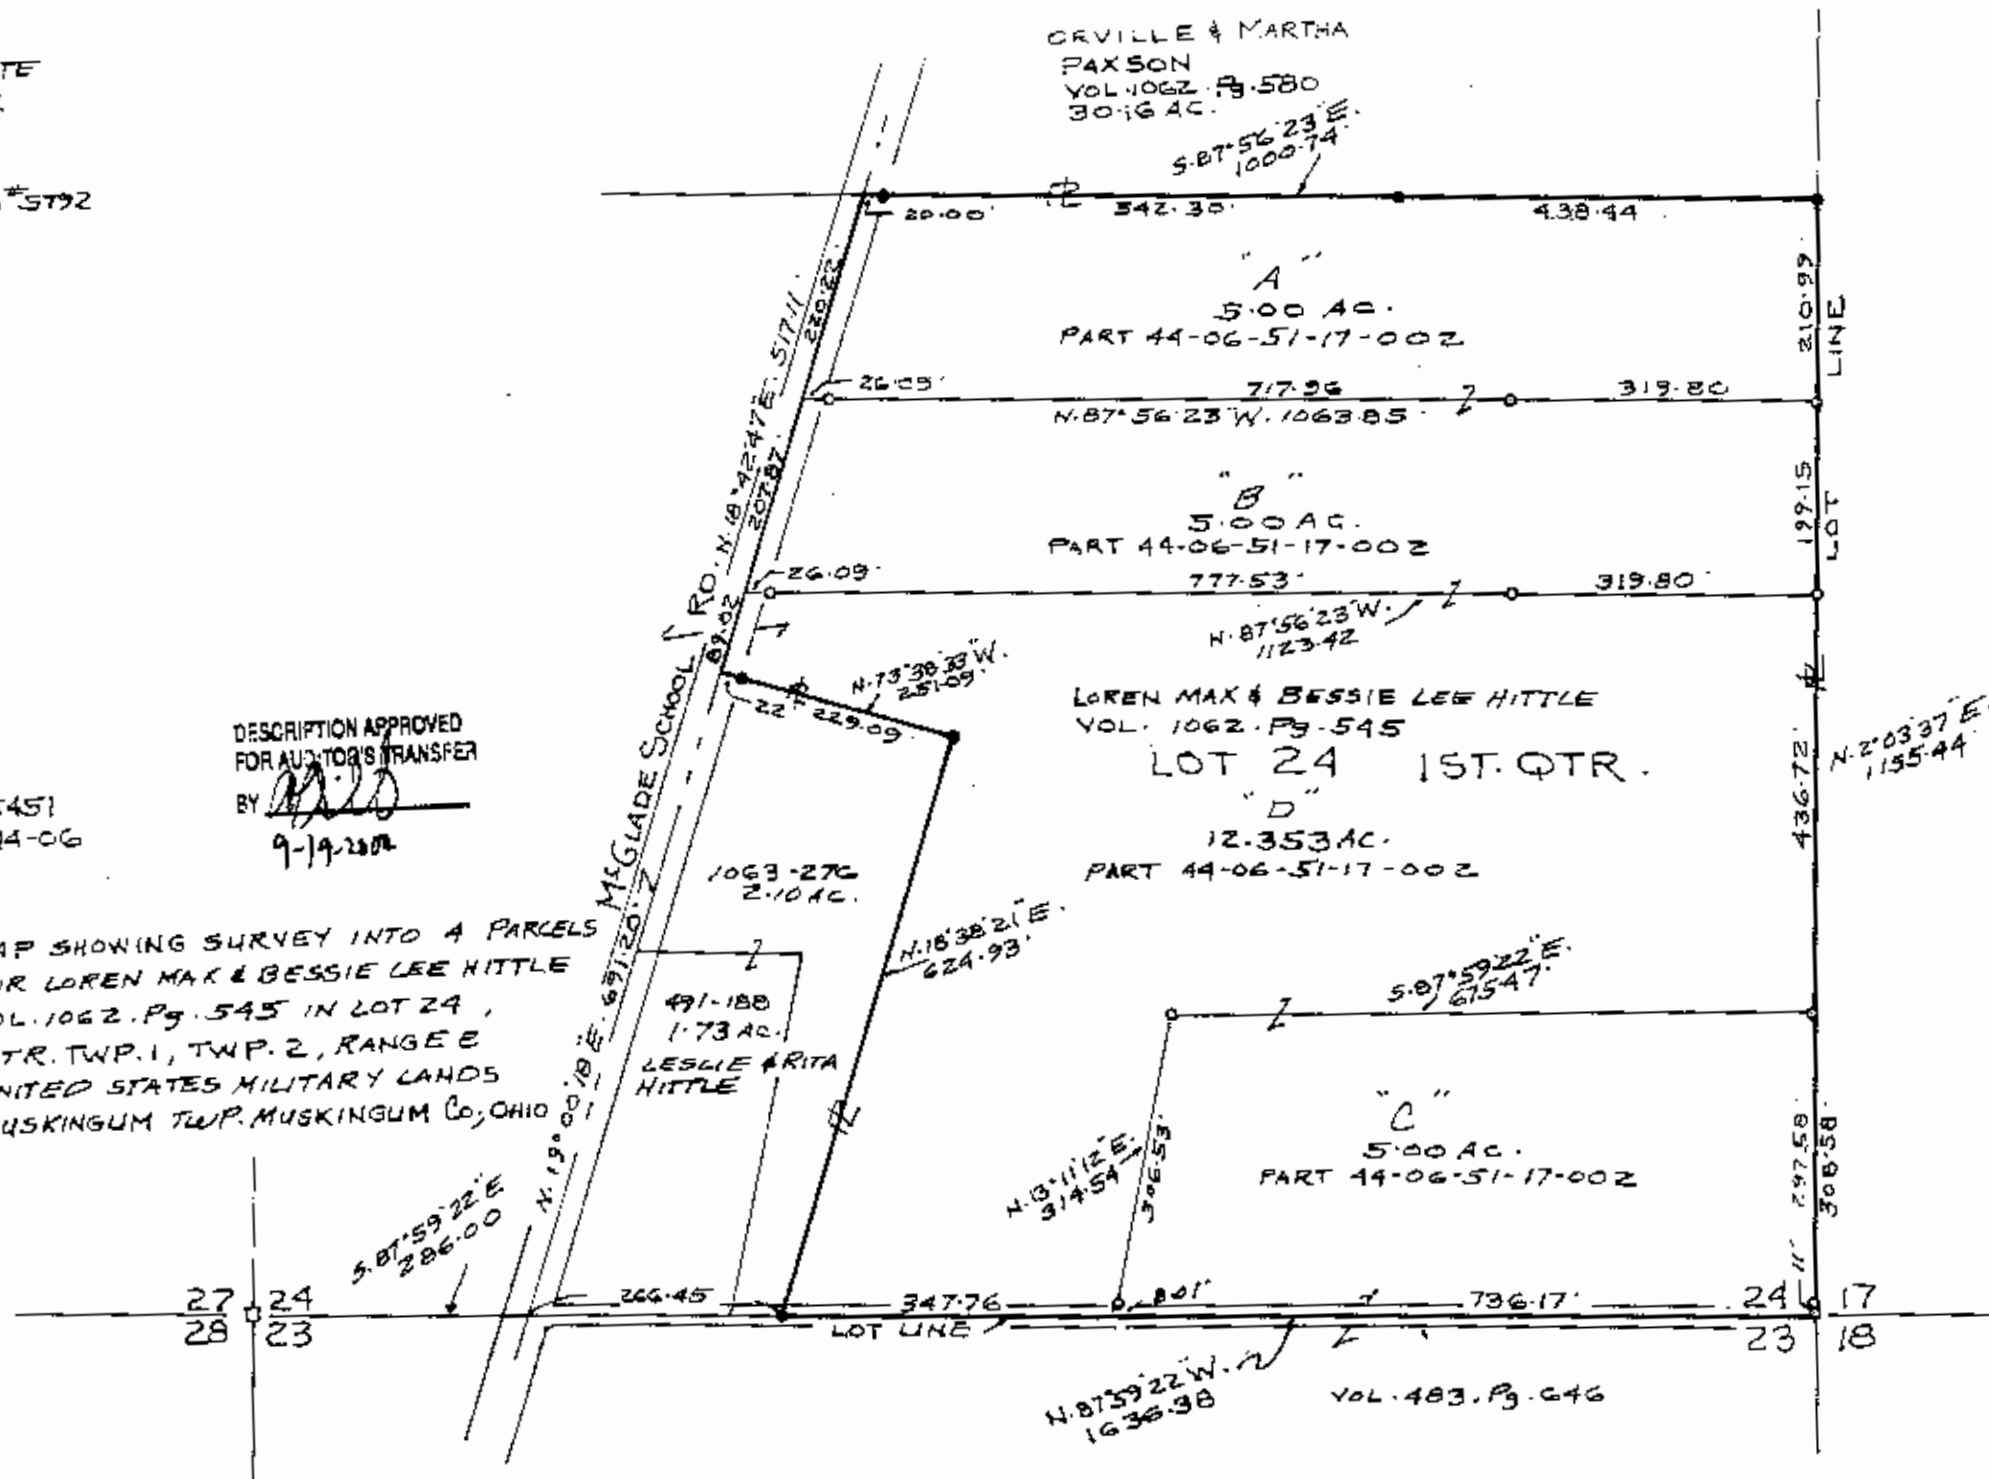 TE
#5792
ORVILLE & MARTHA
PAXSON
VOL.1062.Pg.580
30.16 AC.
S.87°56'23"E.
1000.74'
20.00'
542.30'
438.44
"A"
5.00 AC.
PART 44-06-51-17-002
210.99
LOT LINE
220.22
26.09'
717.96
319.80
N.87°56'23"W. 1063.85
McGLADE SCHOOL RD. N.18°42'47"E. 517.11
207.87
"B"
5.00 AC.
PART 44-06-51-17-002
199.15
26.09'
777.53'
319.80'
N.87°56'23"W.
1123.42
89.02
N.73°38'33"W.
251.09'
22'
229.09
LOREN MAX & BESSIE LEE HITTLE
VOL. 1062.Pg.545
LOT 24 1ST. QTR.
"D"
12.353 AC.
PART 44-06-51-17-002
436.72'
N.2°03'37"E.
1155.44'
DESCRIPTION APPROVED
FOR AUDITOR'S TRANSFER
BY
5451
14-06
1063-276
2.10 AC.
N.18°38'21"E.
624.93'
AP SHOWING SURVEY INTO 4 PARCELS
OR LOREN MAX & BESSIE LEE HITTLE
OL.1062.Pg.545 IN LOT 24,
TR. TWP.1, TWP.2, RANGE 8
NITED STATES MILITARY LANDS
USKINGUM TWP. MUSKINGUM Co; OHIO
491-188
1.73 AC.
LESLIE & RITA
HITTLE
N.19°00'18"E. 691.20'
S.87°59'22"E.
675.47'
"C"
5.00 AC.
PART 44-06-51-17-002
N.13°11'12"E.
314.54'
306.53'
297.58'
308.58'
11'
S.87°59'22"E
286.00
27 24
28 23
266.45
347.76
8.01'
736.17'
LOT LINE
24 17
23 18
N.87°59'22"W.
1636.38
VOL.483.Pg.646